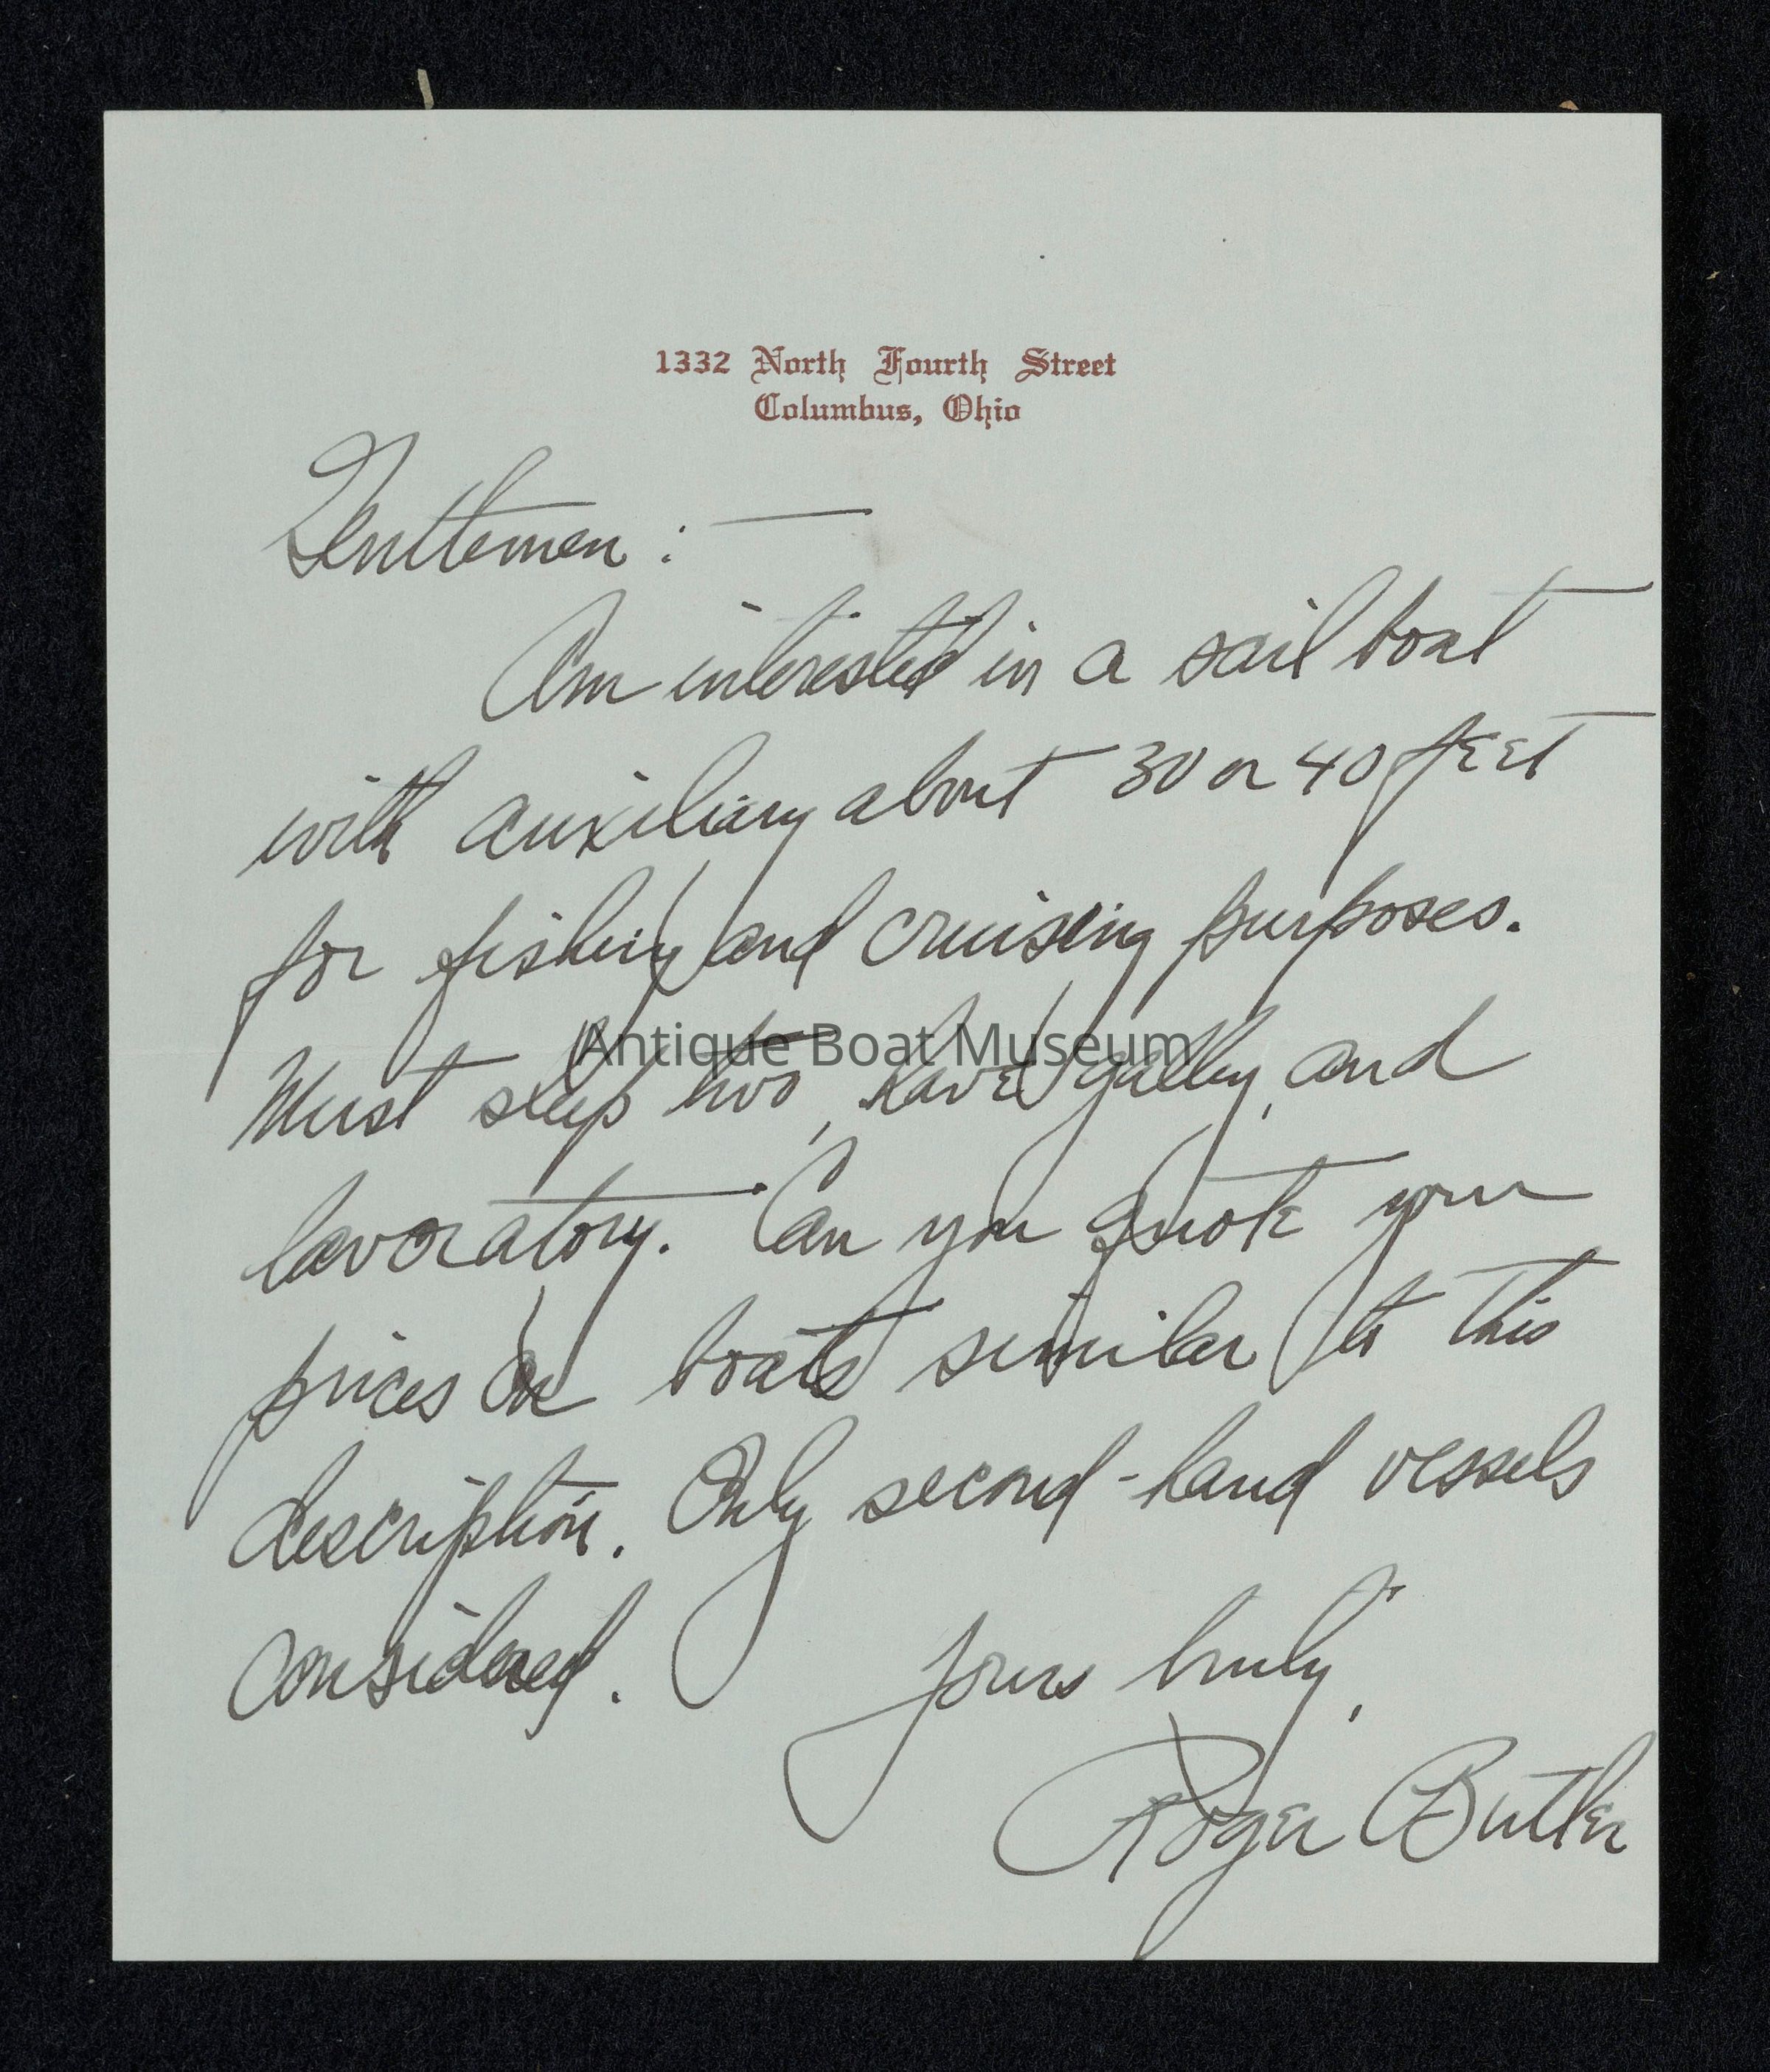 1332 North Fourth Street
Columbus, Ohio
Gentlemen : —
Am interested in a sail boat
with auxiliary about 30 or 40 feet
for fishing and cruising purposes.
Antique Boat Museum
Must sleep two, have galley, and
lavoratory. Can you quote your
prices on boats similar to this
description. Only second-hand vessels
considered.
Yours truly,
Roger Butler